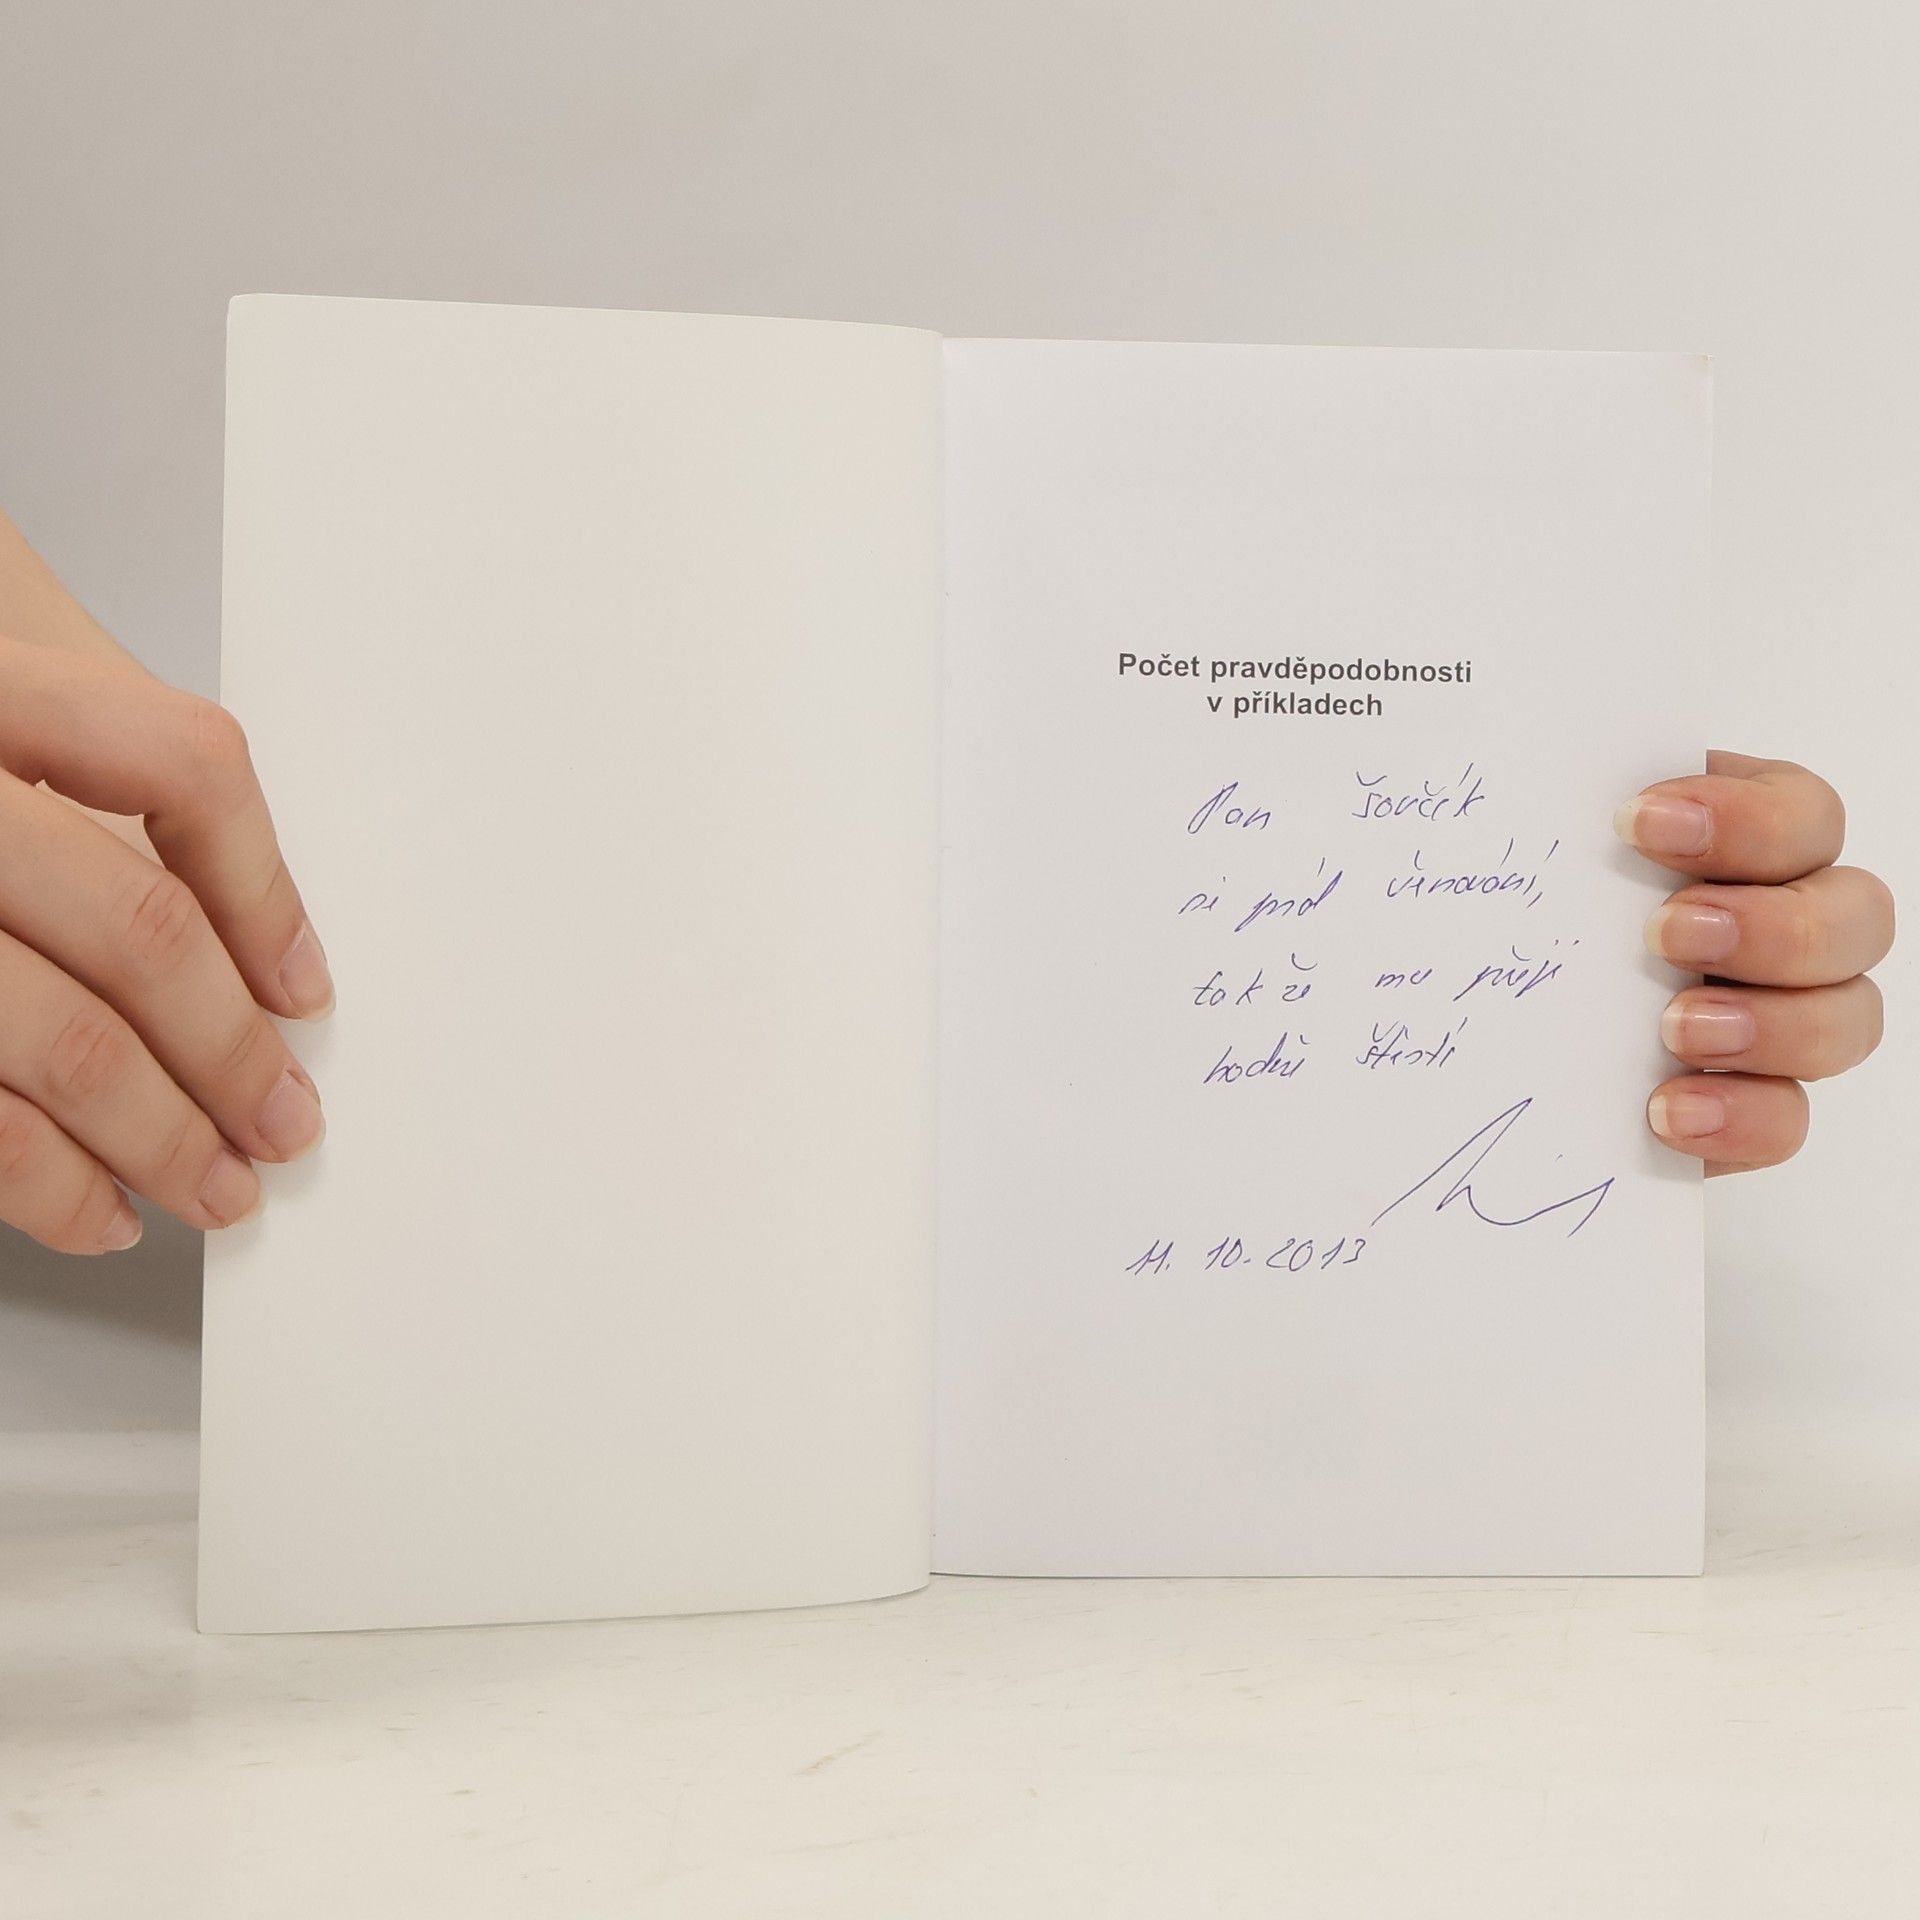 Počet pravděpodobnosti
v příkladech
Pan Šovčík
si přál věnování,
takže mu přeji
hodně štěstí
11. 10. 2013